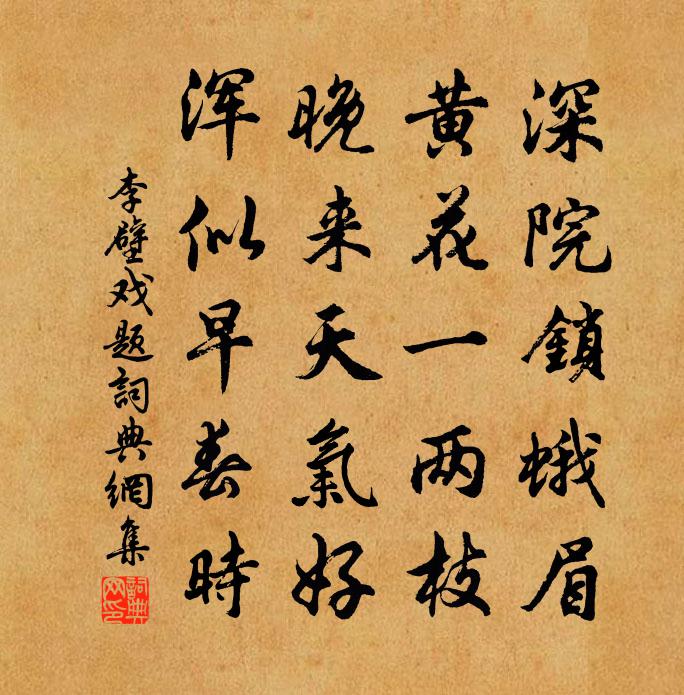 深院鎖蛾眉
黄花一两枝
晚来天氣好
浑似早春時
李壁戏题詞典網集
詞典网印